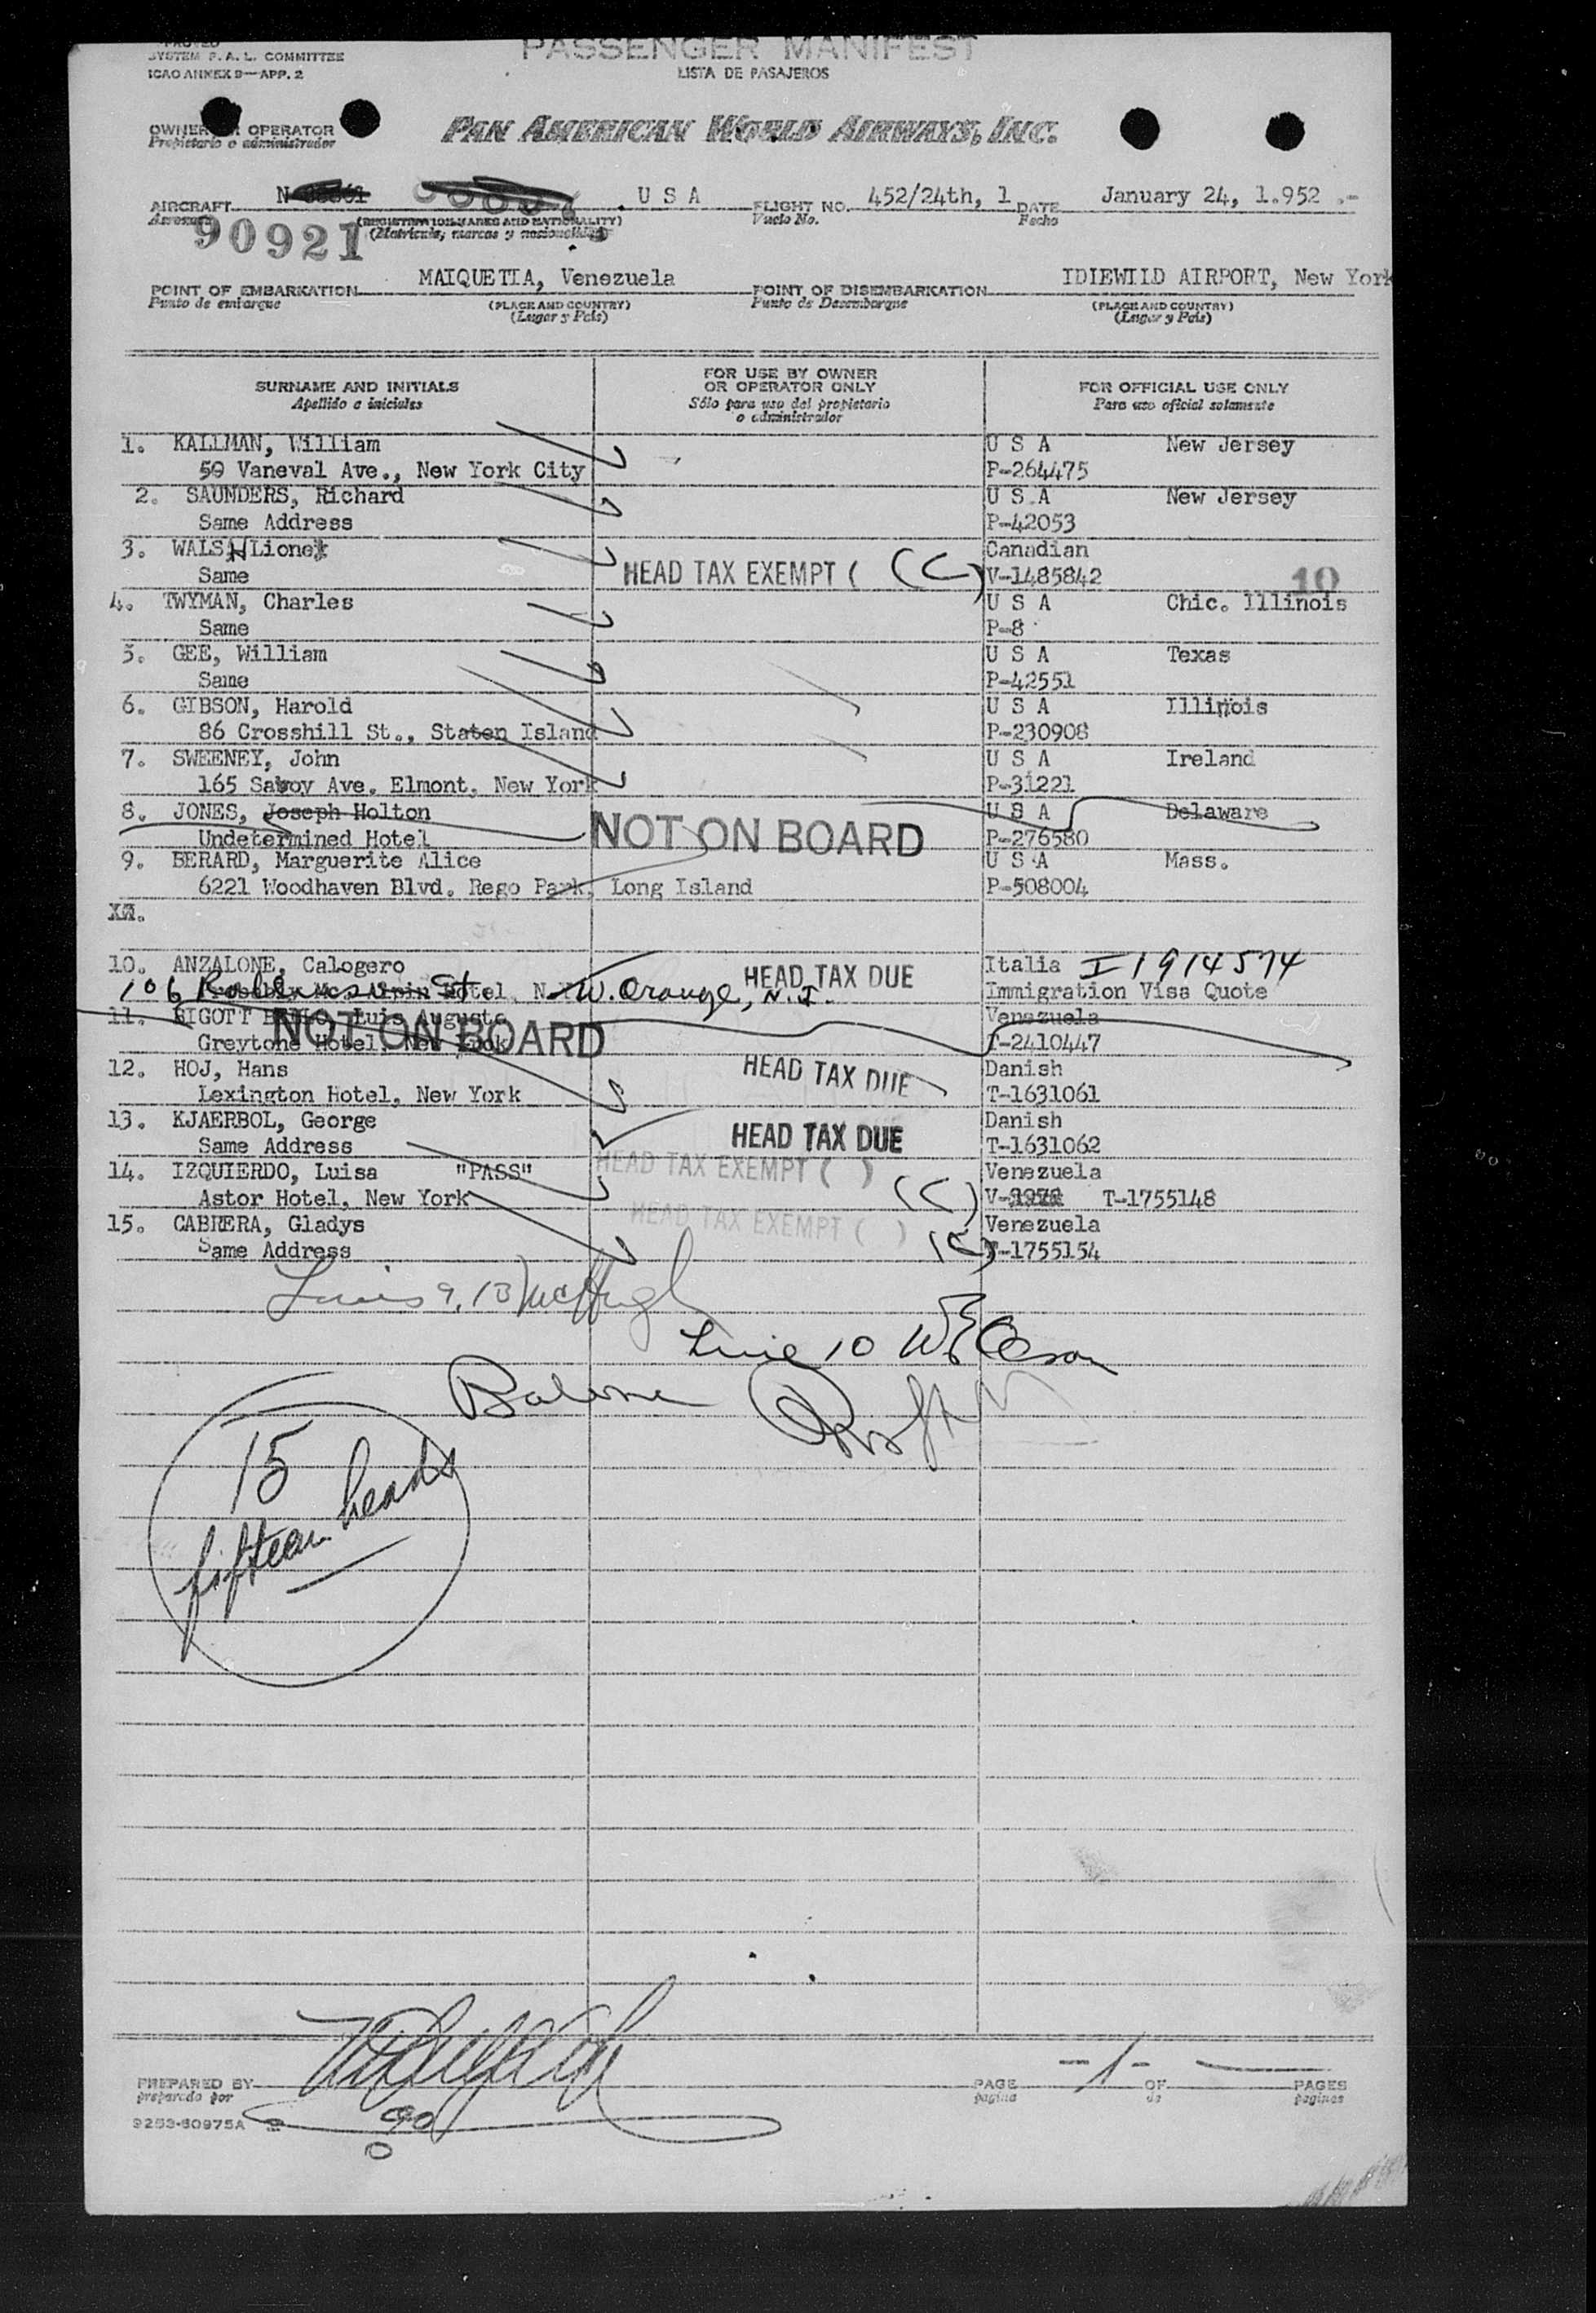 SYSTEM F. A. L. COMMITTEE
ICAO ANNEX 9—APP. 2
PASSENGER MANIFEST
LISTA DE PASAJEROS
OWNER OR OPERATOR
Propietario o administrador
PAN AMERICAN WORLD AIRWAYS, INC.
AIRCRAFT N- U S A FLIGHT NO. 452/24th, 1 DATE January 24, 1.952 .-
Aeronave (REGISTRATION MARKS AND NATIONALITY) Vuelo No. Fecha
(Matrícula, marcas y nacionalidad)
90921
POINT OF EMBARKATION MAIQUETIA, Venezuela POINT OF DISEMBARKATION IDLEWILD AIRPORT, New York
Punto de embarque (PLACE AND COUNTRY) Punto de Desembarque (PLACE AND COUNTRY)
(Lugar y País) (Lugar y País)
SURNAME AND INITIALS FOR USE BY OWNER OR OPERATOR ONLY FOR OFFICIAL USE ONLY
Apellido e iniciales Sólo para uso del propietario o administrador Para uso oficial solamente
1. KALLMAN, William U S A New Jersey
50 Vaneval Ave., New York City P-264475
2. SAUNDERS, Richard U S A New Jersey
Same Address P-42053
3. WALSH Lionel Canadian
Same HEAD TAX EXEMPT ( (C) V-1485842 10
4. TWYMAN, Charles U S A Chic. Illinois
Same P-8
5. GEE, William U S A Texas
Same P-42551
6. GIBSON, Harold U S A Illinois
86 Crosshill St., Staten Island P-230908
7. SWEENEY, John U S A Ireland
165 Savoy Ave. Elmont, New York P-31221
8. JONES, Joseph Holton U S A Delaware
Undetermined Hotel NOT ON BOARD P-276580
9. BERARD, Marguerite Alice U S A Mass.
6221 Woodhaven Blvd. Rego Park, Long Island P-508004
10. ANZALONE, Calogero HEAD TAX DUE Italia I1914574
106 St. W. Orange, N.J. Immigration Visa Quote
11. BIGOTT Luis Augusto Venezuela
Greytone Hotel, New York NOT ON BOARD T-2410447
12. HOJ, Hans HEAD TAX DUE Danish
Lexington Hotel, New York T-1631061
13. KJAERBOL, George HEAD TAX DUE Danish
Same Address T-1631062
14. IZQUIERDO, Luisa "PASS" HEAD TAX EXEMPT ( ) Venezuela
Astor Hotel, New York (C) V- T-1755148
15. CABRERA, Gladys HEAD TAX EXEMPT ( ) Venezuela
Same Address (C) T-1755154
9, 13 McHugh
Line 10
15
fifteen heads
PREPARED BY PAGE -1- OF PAGES
preparado por página de páginas
9253-50975A
90